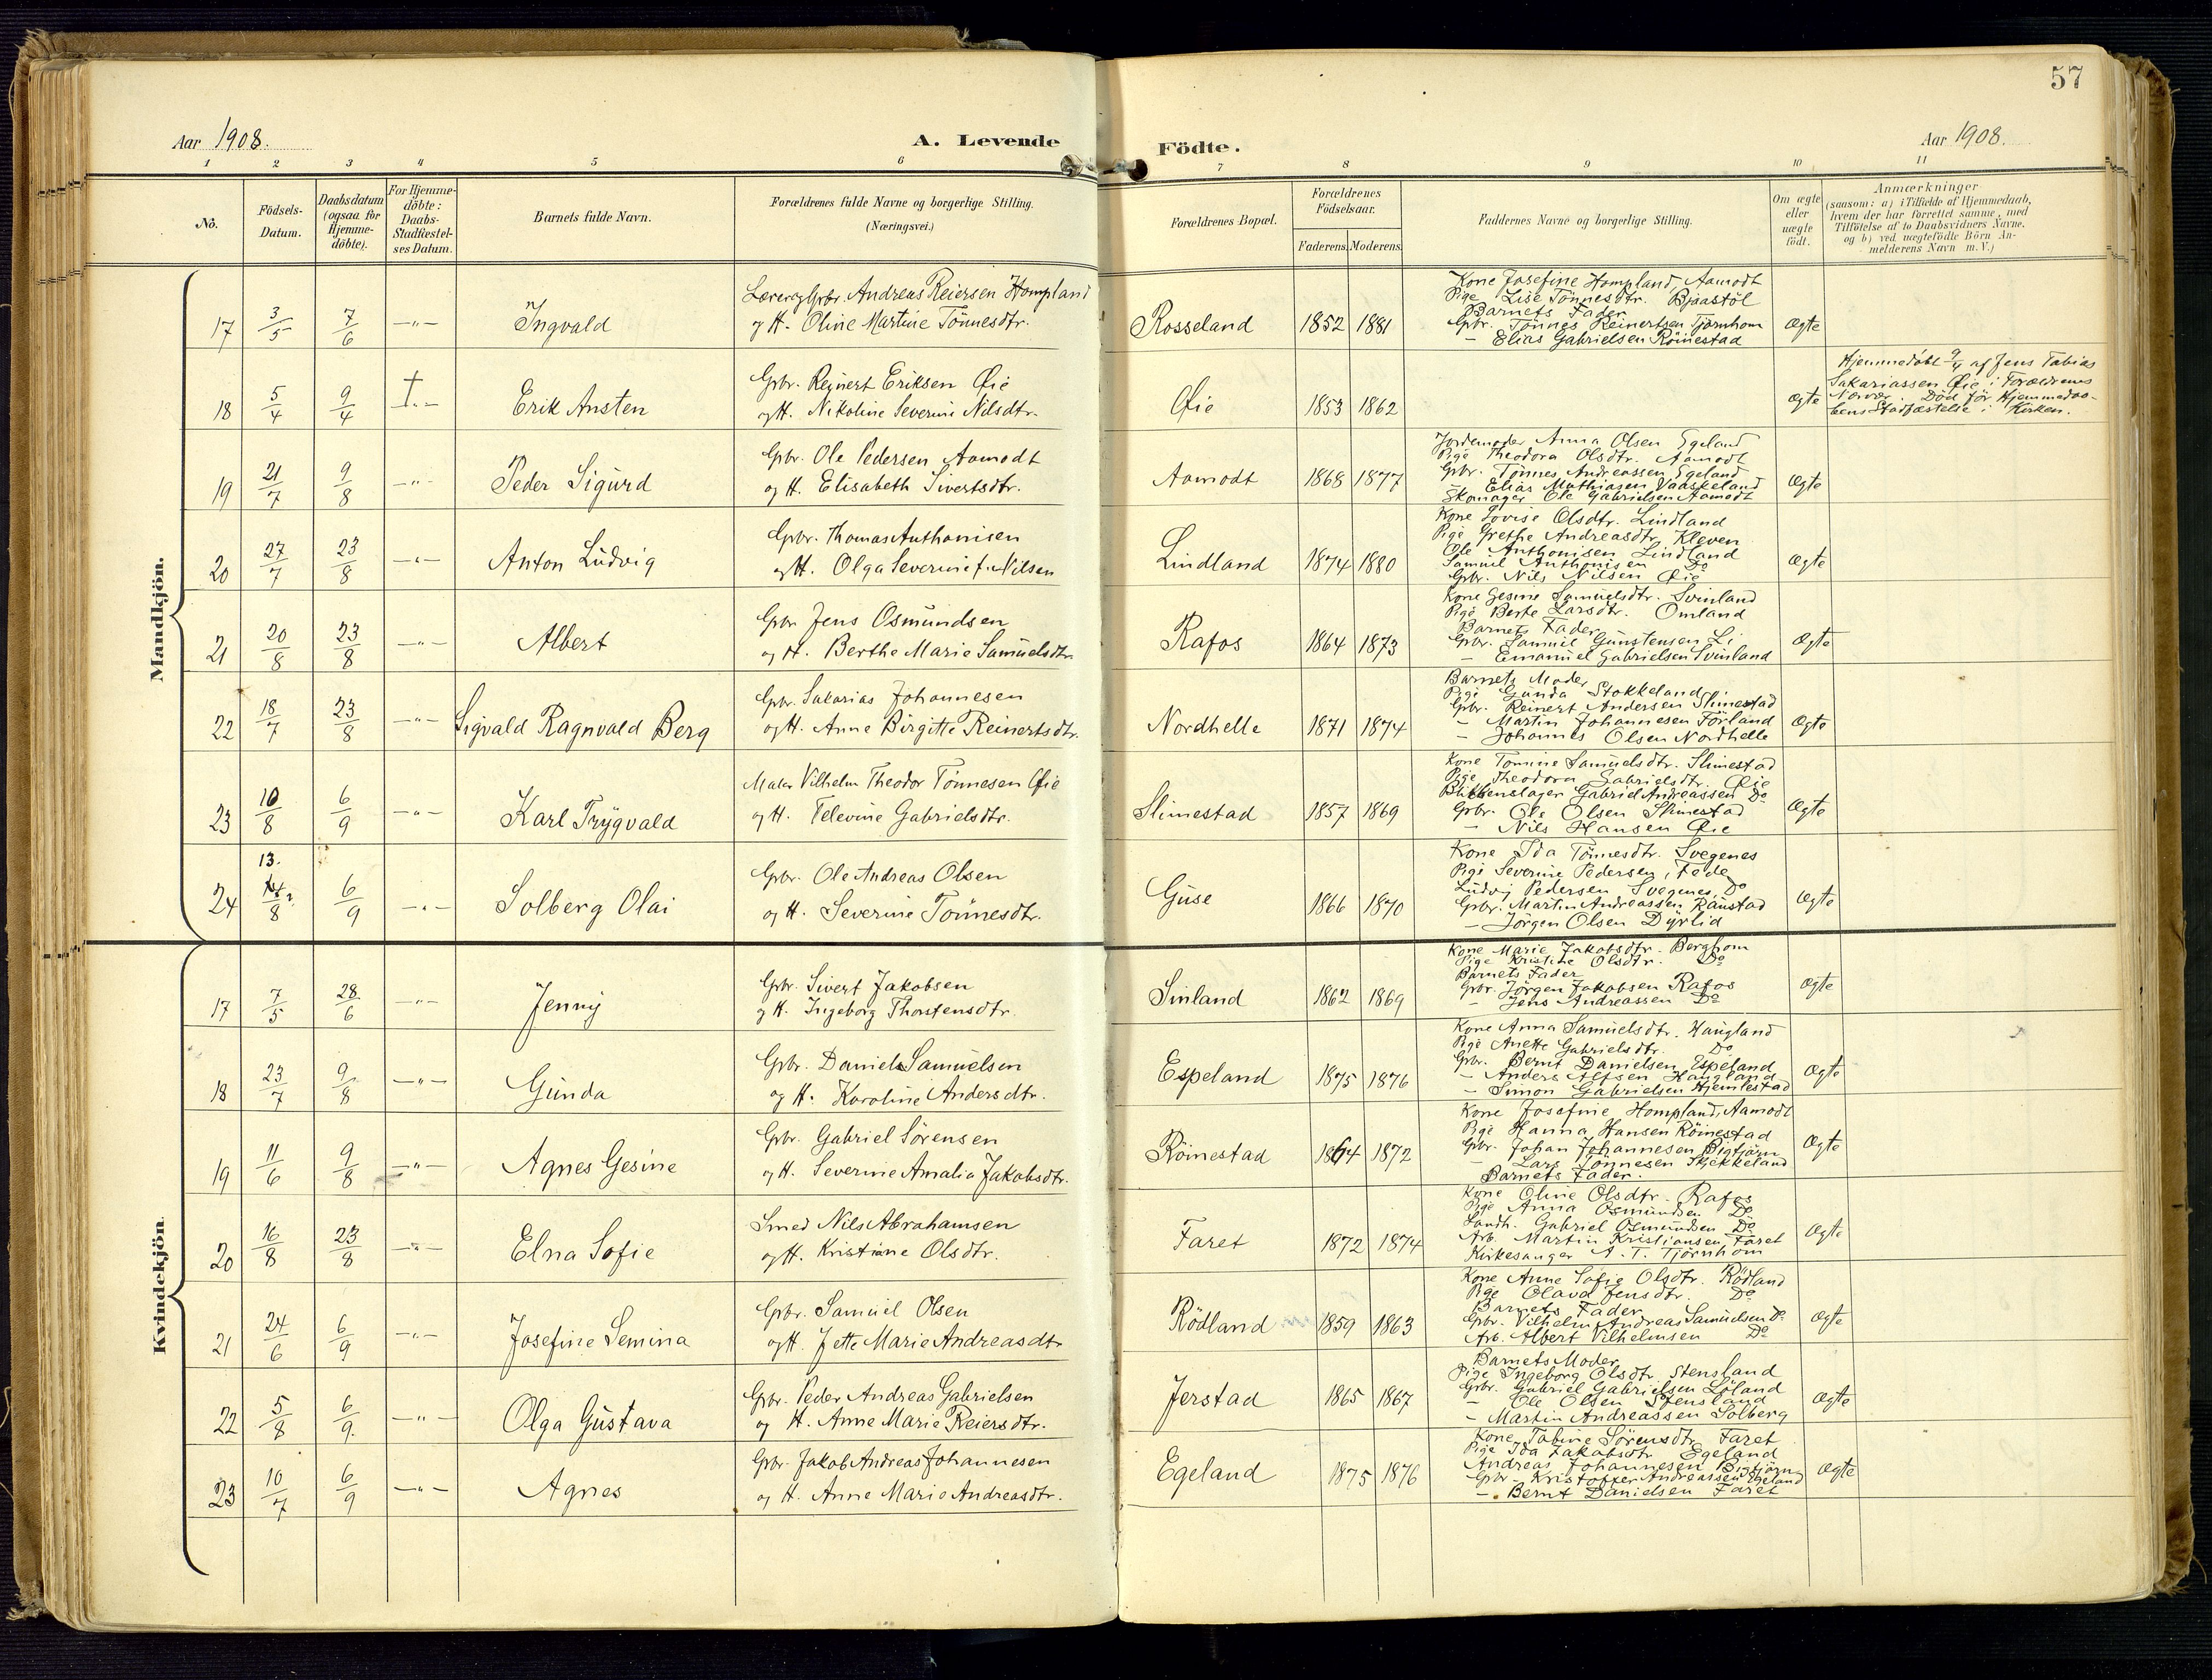 57
Aar 1908. A. Levende Födte. Aar 1908.
1 2 3 4 5 6 7 8 9 10 11
No.
Födsels-Datum.
Daabsdatum (ogsaa for Hjemme-döbte).
For Hjemme-döbte: Daabs-Stadfæstel-ses Datum.
Barnets fulde Navn.
Forældrenes fulde Navne og borgerlige Stilling.
(Næringsvei.)
Forældrenes Bopæl.
Forældrenes Födselsaar.
Faderens. Moderens.
Faddernes Navne og borgerlige Stilling.
Om ægte eller uægte födt.
Anmærkninger
(saasom: a) i Tilfælde af Hjemmedaab,
hvem der har forrettet samme, med
Tilföielse af to Daabsvidners Navne,
og b) ved uægtefödte Börn An-
melderens Navn m. V.)
Mandkjön.
17 3/5 7/6 —"— Ingvald
Lærer og Gbr. Andreas Reiersen Hompland
og H. Oline Martine Tönnesdtr.
Rosseland 1852 1881
Kone Josefine Hompland, Aamodt
Pige Lise Tönnesdtr. Bjaastöl
Barnets Fader
Gbr. Tönnes Reinertsen Tjörnhom
— Elias Gabrielsen Röinestad
Ægte
18 5/4 9/4 † —"— Erik Ansten
Gbr. Reinert Eriksen Öie
og H. Nikoline Severine Nilsdtr.
Öie 1853 1862 Ægte
Hjemmedöbt 9/4 af Jens Tobias
Sakariassen Öie i Forældrenes
Nærvær. Död för Hjemmedaa-
bens Stadfæstelse i Kirken.
19 21/7 9/8 —"— Peder Sigurd
Gbr. Ole Pedersen Aamodt
og H. Elisabeth Sivertsdtr.
Aamodt 1868 1877
Jordemoder Anna Olsen Egeland
Pige Theodora Olsdtr. Aamodt
Gbr. Tönnes Andreassen Egeland
— Elias Mathiasen Vaaskeland
Skomager Ole Gabrielsen Aamodt
Ægte
20 27/7 23/8 —"— Anton Ludvig
Gbr. Thomas Anthonisen
og H. Olga Severine f. Nilsen
Lindland 1874 1880
Kone Lovise Olsdtr. Lindland
Pige Grethe Andreasdtr. Kleven
Ole Anthonisen Lindland
Samuel Anthonisen Do
Gbr. Nils Nilsen Öie
Ægte
21 20/8 23/8 —"— Albert
Gbr Jens Osmundsen
og H. Berthe Marie Samuelsdtr
Rafos 1864 1873
Kone Gesine Samuelsdtr. Svinland
Pige Berte Larsdtr. Omland
Barnets Fader
Gbr. Samuel Gunstensen Li
— Emanuel Gabrielsen Svinland
Ægte
22 18/7 23/8 —"— Sigvald Ragnvald Berg
Gbr. Sakarias Johannesen
og H. Anne Birgitte Reinertsdtr.
Nordhelle 1871 1874
Barnets Moder
Pige Gunda Stokkeland
Gbr. Reinert Andersen Slimestad
— Martin Johannesen Förland
— Johannes Olsen Nordhelle
Ægte
23 10/8 6/9 —"— Karl Trygvald
Maler Vilhelm Theodor Tönnesen Öie
og H. Televine Gabrielsdtr.
Slimestad 1857 1869
Kone Tomine Samuelsdtr. Slimestad
Pige Theodora Gabrielsdtr. Öie
Blikkenslager Gabriel Andreassen Do
Gbr. Ole Olsen Slimestad
— Nils Hansen Öie
Ægte
24 13. 14/8 6/9 —"— Solberg Olai
Gbr. Ole Andreas Olsen
og H. Severine Tönnesdtr.
Guse 1866 1870
Kone Ida Tönnesdtr. Svegenes
Pige Severine Pedersen, Fede
Ludvig Pedersen Svegenes, Do
Gbr. Martin Andreassen Raustad
— Jörgen Olsen Dyrlid
Ægte
Kvindekjön.
17 7/5 28/6 —"— Jenny
Gbr. Sivert Jakobsen
og H. Ingeborg Thorstensdtr.
Sinland 1862 1869
Kone Marie Jakobsdtr. Berghom
Pige Kristine Olsdtr. Do
Barnets Fader
Gbr. Jörgen Jakobsen Rafos
— Jens Andreassen Do
Ægte
18 23/7 9/8 —"— Gunda
Gbr. Daniel Samuelsen
og H. Karoline Andersdtr.
Espeland 1875 1876
Kone Anna Samuelsdtr. Haugland
Pige Anette Gabrielsdtr. Do
Gbr. Bernt Danielsen Espeland
— Anders Alfsen Haugland
— Simon Gabrielsen Hjemlestad
Ægte
19 11/6 9/8 —"— Agnes Gesine
Gbr. Gabriel Sörensen
og H. Severine Amalia Jakobsdtr.
Röinestad 1864 1872
Kone Josefine Hompland, Aamodt
Pige Hanna Hansen Röinestad
Gbr. Johan Johannesen Bigtjörn
— Lars Tönnesen Skjekkeland
Barnets Fader.
Ægte
20 16/8 23/8 —"— Elna Sofie
Smed Nils Abrahamsen
og H. Kristiane Olsdtr.
Faret 1872 1874
Kone Oline Olsdtr. Rafos
Pige Anna Osmundsen Do
Landh. Gabriel Osmundsen Do
Arb. Martin Kristiansen Faret
Kirkesanger A. T. Tjörnhom
Ægte
21 24/6 6/9 —"— Josefine Semina
Gbr. Samuel Olsen
og H. Jette Marie Andreasdtr
Rödland 1859 1863
Kone Anne Sofie Olsdtr. Rödland
Pige Olava Jensdtr. Do
Barnets Fader
Gbr. Vilhelm Andreas Samuelsen Do
Arb. Albert Vilhelmsen Do
Ægte
22 5/8 6/9. —"— Olga Gustava
Gbr. Peder Andreas Gabrielsen
og H. Anne Marie Reiersdtr.
Jerstad 1865 1867
Barnets Moder
Pige Ingeborg Olsdtr. Stensland
Gbr. Gabriel Gabrielsen Löland
— Ole Olsen Stensland
— Martin Andreassen Solberg
Ægte
23 10/7 6/9 —"— Agnes
Gbr. Jakob Andreas Johannesen
og H. Anne Marie Andreasdtr.
Egeland 1875 1876
Kone Tabine Sörensdtr Faret
Pige Ida Jakobsdtr. Egeland
Andreas Johannesen Bigtjörn
Gbr. Kristoffer Andreassen Egeland
— Bernt Danielsen Faret
Ægte